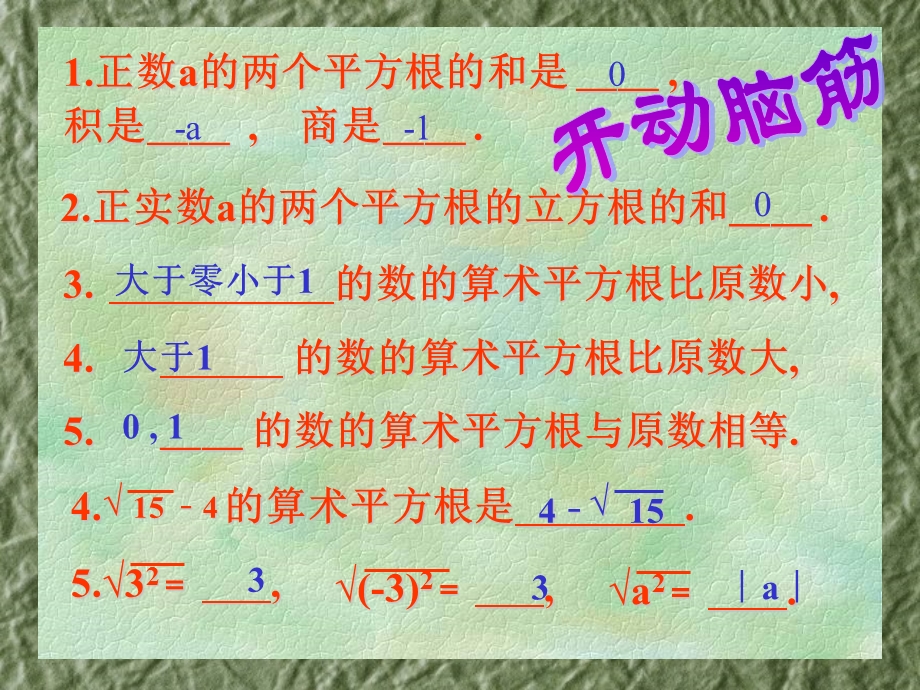 开动脑筋
1.正数a的两个平方根的和是 0 ,
积是 -a , 商是 -1 .
2.正实数a的两个平方根的立方根的和 0 .
3. 大于零小于1 的数的算术平方根比原数小,
4. 大于1 的数的算术平方根比原数大,
5. 0 , 1 的数的算术平方根与原数相等.
4.√15 - 4 的算术平方根是 4 - √15 .
5.√3² = 3 , √(-3)² = 3 , √a² = | a | .